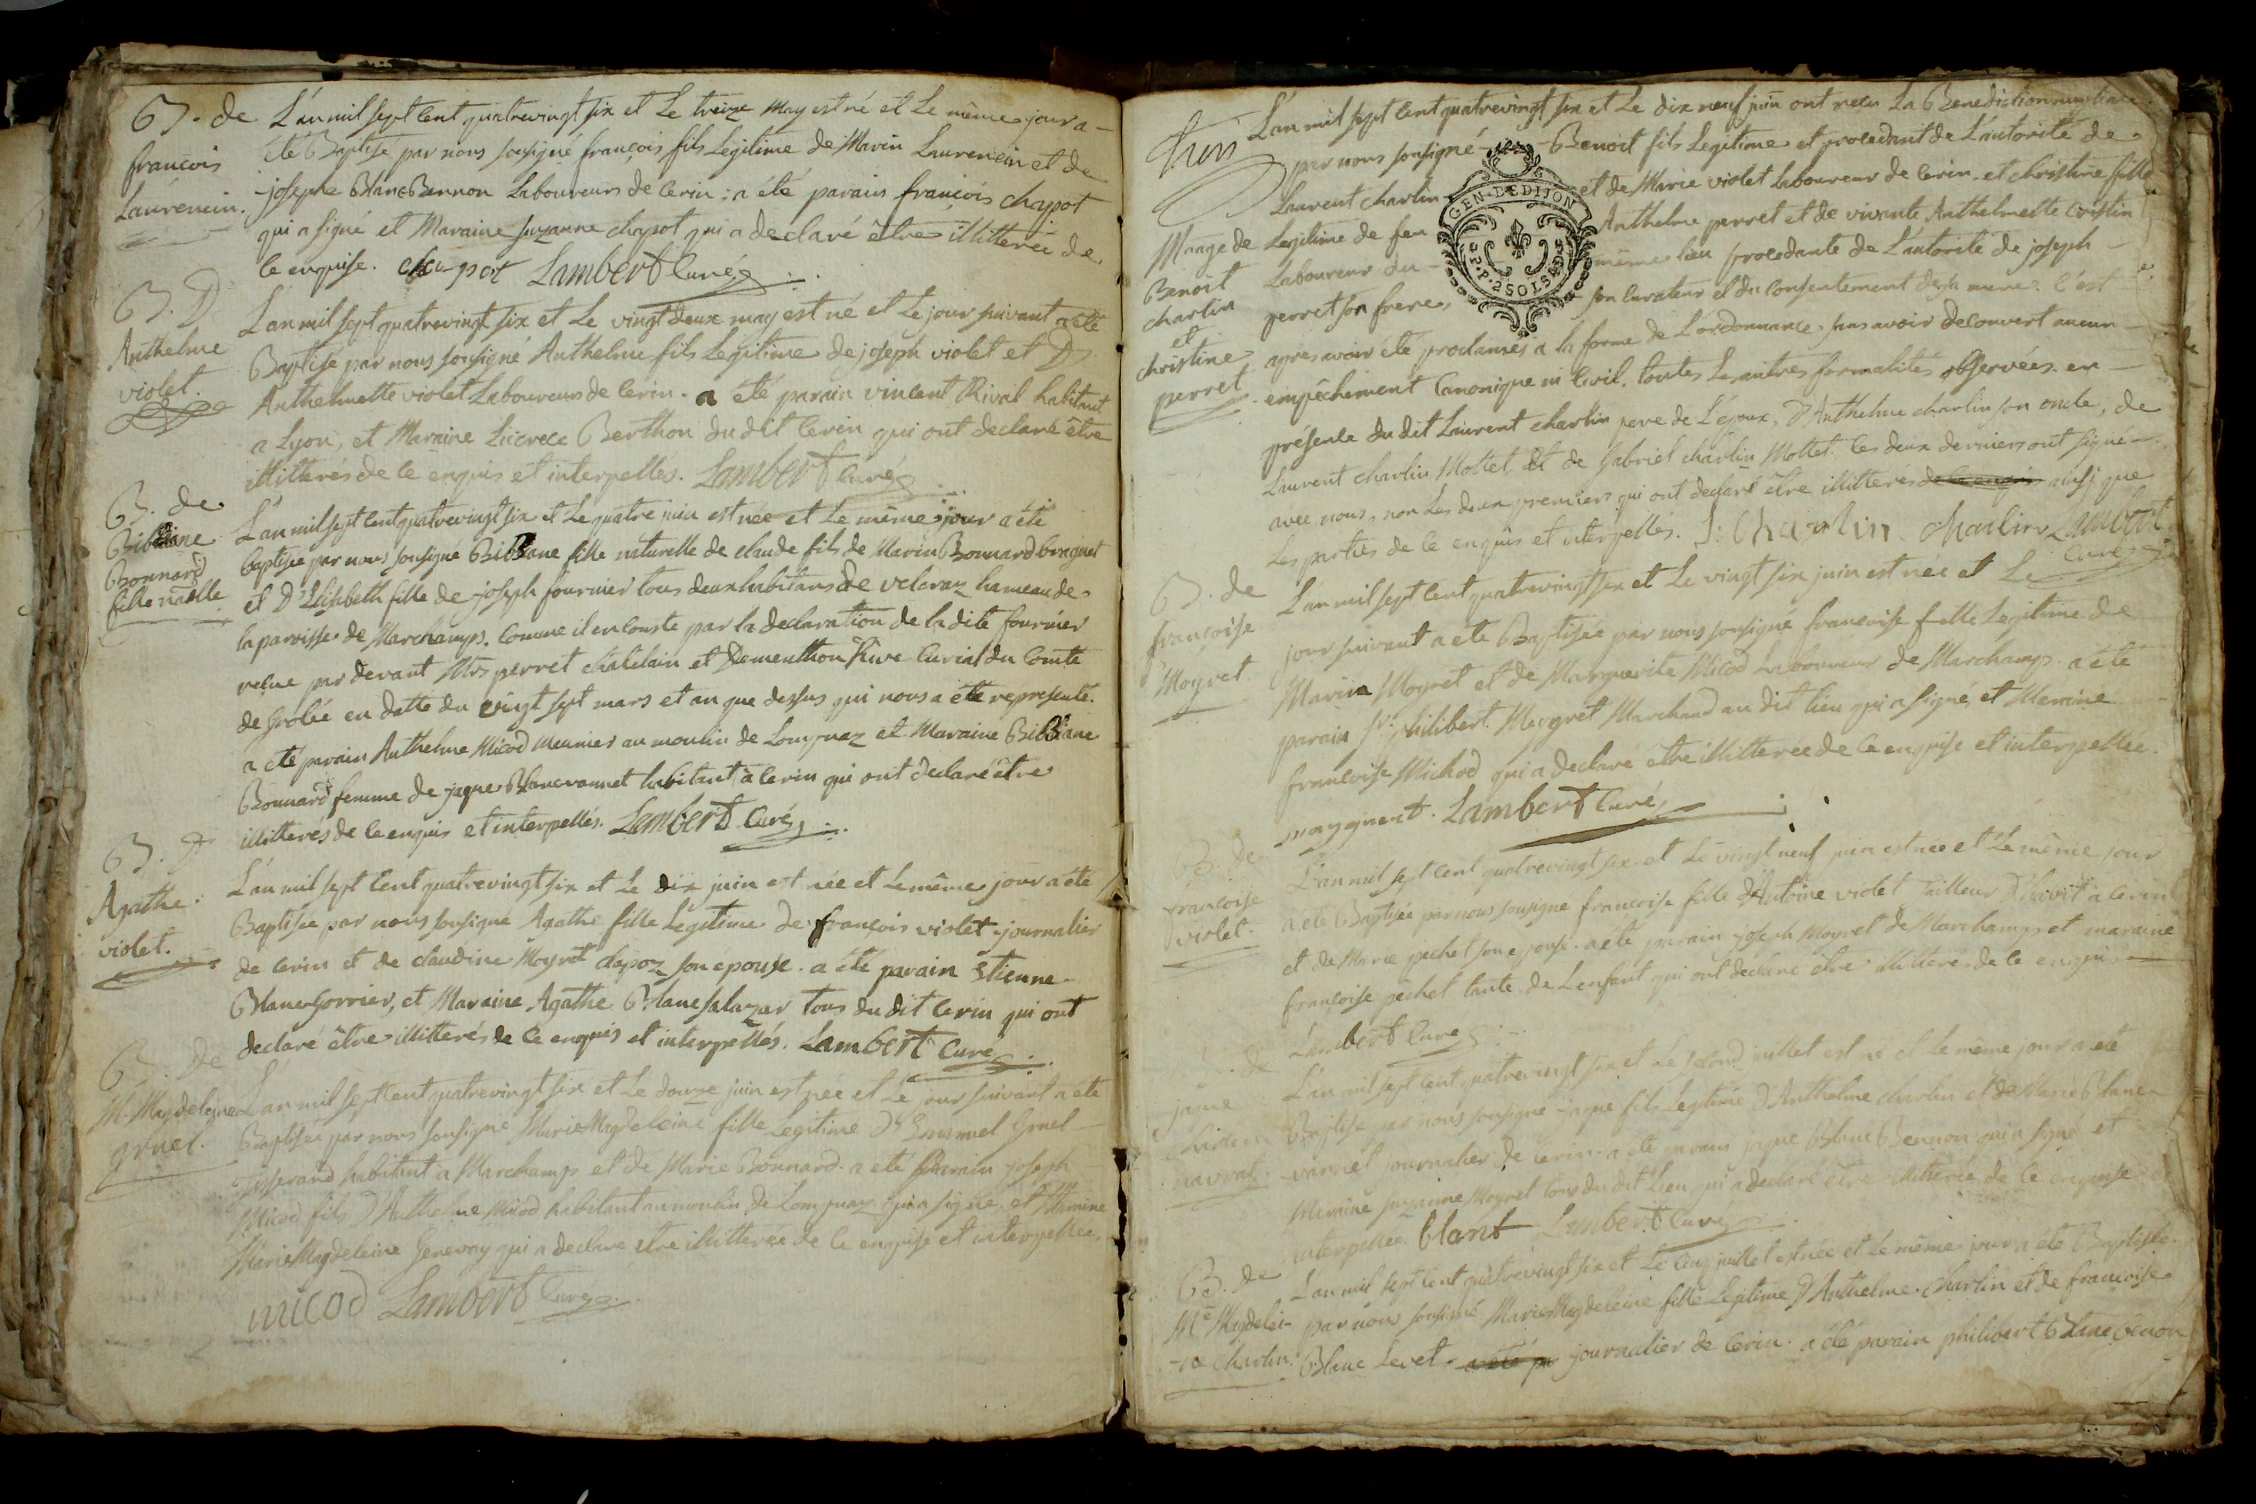 B. de
françois
Laurencin.
L'an mil sept cent quatrevingt six et Le treize may est né et Le même jour a
été Baptisé par nous sousigné françois fils Legitime de Marin Laurencin et de
josephe Blanc Bennon Laboureurs de Cerin; a été parain françois chapot
qui a signé et Maraine suzanne chapot qui a declaré être illitterée de
ce enquise. chapot Lambert Curé
B. D'
Anthelme
violet.
L'an mil sept quatrevingt six et Le vingt deux may est né et Le jour suivant a été
Baptisé par nous sousigné Anthelme fils Legitime de joseph violet et D'
Anthelmette violet Laboureurs de Cerin. a été parain vincent Rival habitant
a Lyon, et Maraine Lucrece Berthon du dit Cerin qui ont declaré être
illitterés de ce enquis et interpellés. Lambert Curé
B. de
Bibiane
Bonnard
fille nalle
L'an mil sept cent quatrevingt six et Le quatre juin est née et Le même jour a été
baptisée par nous sousigné Bibiane fille naturelle de claude fils de Marin Bonnard
et D'Elisabeth fille de joseph fournier tous deux habitans de veloraz hameau de
la paroisse de Marchamps. comme il en conste par la declaration de la dite fournier
reçue par devant Mrs perret chatelain et Dementhon Rive Curial du Comté
de Grolée en datte du vingt sept mars et an que dessus qui nous a été representé.
a été parain Anthelme Micod Meunier au moulin de Lompnaz et Maraine Bibiane
Bonnard femme de jaque Blanc vannet habitant à Cerin qui ont declaré être
illitterés de ce enquis et interpellés. Lambert Curé
B. D'
Agathe
violet.
L'an mil sept Cent quatrevingt six et Le dix juin est née et Le même jour a été
Baptisée par nous sousigné Agathe fille Légitime de françois violet journalier
de Cerin et de claudine Moyret dapoz son epouse. a été parain Etienne
Blanc Gorrier, et Maraine Agathe Blanc salazar tous du dit Cerin qui ont
declaré être illitterés de ce enquis et interpellés. Lambert Curé
B. de
Me Magdeleine
gruel.
L'an mil sept Cent quatrevingt six et Le douze juin est née et Le jour suivant a été
Baptisée par nous sousigné Marie Magdeleine fille Legitime D' Emmuel Gruel
Tisserand habitant a Marchamps et de Marie Bonnard. a été parain joseph
Micod fils D'Anthelme Micod habitant au moulin de Lompnaz qui a signé, et Maraine
Marie Magdeleine Genevay qui a declaré être illitterée de ce enquise et interpellée.
micod Lambert Curé
trois
Mariage de
Benoit
charlin
et
christine
perret
L'an mil sept cent quatrevingt six et Le dix neuf juin ont reçu La Benediction nuptiale
par nous sousigné Benoit fils Legitime et procedant de L'autorité de
Laurent charlin et de Marie violet Laboureur de Cerin. et christine fille
Legitime de feu Anthelme perret et de vivante Anthelmette
Laboureur du même lieu procedante de L'autorité de joseph
perret son frere, son Curateur et du Consentement de sa mere. C'est
GEN. DE DIJON
2 SOLS
apres avoir été proclamés a la forme de L'ordonnance, sans avoir decouvert aucun
empêchement Canonique ni Civil. toutes Les autres formalités observées. en
présence du dit Laurent charlin pere de L'époux, D'Anthelme charlin son oncle, de
Laurent charlin Mottet, et de Gabriel charlin Mottet. Les deux derniers ont signé
avec nous, non Les deux premiers qui ont declaré être illitterés de ce enquis ainsi que
Les parties de ce enquis et interpellés. J: Charlin charlin Lambert
Curé
B. de
françoise
Moyret.
L'an mil sept cent quatrevingt six et Le vingt six juin est née et Le
jour suivant a été Baptisée par nous sousigné françoise fille Legitime de
Marin Moyret et de Marguerite Micod Laboureur de Marchamps. a été
parain sr. philibert Meygret Marchand au dit lieu qui a signé, et Maraine
françoise Michod qui a declaré être illitterée de ce enquise et interpellée.
Lambert Curé
B. de
françoise
violet.
L'an mil sept cent quatrevingt six et Le vingt neuf juin est née et Le même jour
a été Baptisée par nous sousigné françoise fille d'Antoine violet Tailleur D'habit a Cerin
et de Marie pechet son epouse. a été parain joseph Moyret de Marchamps et maraine
françoise pechet tante de L'enfant qui ont declaré être illitterés de ce enquis
Lambert Curé
B. de
jaque
L'an mil sept cent quatrevingt six et Le second juillet est né et Le même jour a été
Baptisé par nous sousigné jaque fils Legitime D'Anthelme charlin et de Marie Blanc
vannet journalier de Cerin. a été parain jaque Blanc Bennon qui a signé et
Maraine suzanne Moyret tous du dit Lieu qui a declaré être illitterée de ce enquise et
interpellée. blant Lambert Curé
B. de
Me Magdelei-
-ne Charlin.
L'an mil sept cent quatrevingt six et Le cinq juillet est née et Le même jour a été Baptisée
par nous sousigné Marie Magdeleine fille Legitime D'Anthelme Charlin et de françoise
Blanc Levet. a été par journalier de Cerin. a été parain philibert Blanc venon